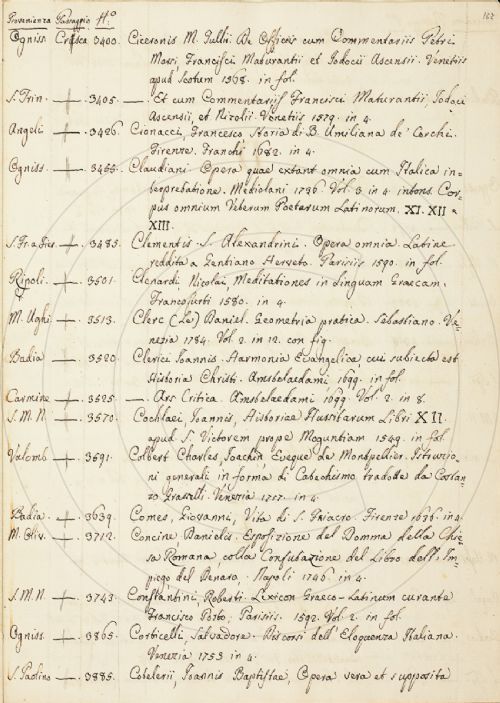 Provenienza Passaggio N.º 102
Ogniss. Crusca 3400. Ciceronis M. Tullii De Officiis cum Commentariis Petri
Marsi, Francisci Maturantii et Jodocii Ascensii. Venetiis
apud Scotum 1568. in fol.
S. Trin. 3405. —. Et cum Commentariis Francisci Maturantii, Jodoci
Ascensii, et Nizolii. Venetiis 1579. in 4.
Angeli 3426. Cionacci, Francesco Storia di B. Umiliana de' Cerchi.
Firenze. Franchi 1682. in 4.
Ogniss. Claudiani Opera quae extant omnia cum Italica in=
terpretatione. Mediolani 1736 Vol. 3. in 4. intons. Cor=
pus omnium Veterum Poetarum Latinorum. XI. XII e
XIII.
3485. Clementis S. Alexandrini. Opera omnia Latine
reddita a Gentiano Herveto. Parisiis 1590. in fol.
Ripoli 3501. Clenardi, Nicolai, Meditationes in Linguam Graecam.
Francofurti 1580. in 4.
M. Ughi 3513. Clerc (Le) Daniel. Geometria pratica. Sebastiano. Ve=
nezia 1784. Vol. 2. in 12. con fig.
Badia 3520. Clerici Joannis. Harmonia Evangelica, cui subiecta est
Historia Christi. Amstelaedami 1699. in fol.
Carmine 3525. —. Ars Critica. Amstelaedami 1699. Vol. 2. in 8.
S. M. N. 3570. Cochlaei, Joannis, Historiae Hussitarum Libri XII.
apud S. Victorem prope Moguntiam 1549. in fol.
Valomb. 3591. Colbert Charles, Joachin Eveque de Montpellier. Istruzio=
ni generali in forma di Catechismo tradotte da Costan=
zo Grasselli. Venezia 1717. in 4.
Badia. 3639. Comes, Giovanni, Vita di S. Friacro. Firenze 1636. in 4.
M. Oliv. 3712. Concine, Danielis. Esposizione del Domma della Chie=
sa Romana, colla Confutazione del Libro dell' Im=
piego del Denaro. Napoli 1746. in 4.
S. M. N. 3743. Constantini, Roberti. Lexicon Graeco-Latinum curante
Francisco Porto, Parisiis. 1592. Vol. 2. in fol.
Ogniss. 3865. Corticelli, Salvadore. Discorsi dell' Eloquenza Italiana.
Venezia 1753 in 4.
S. Paolino 3885. Cotelerii, Joannis Baptistae, Opera vera et supposita